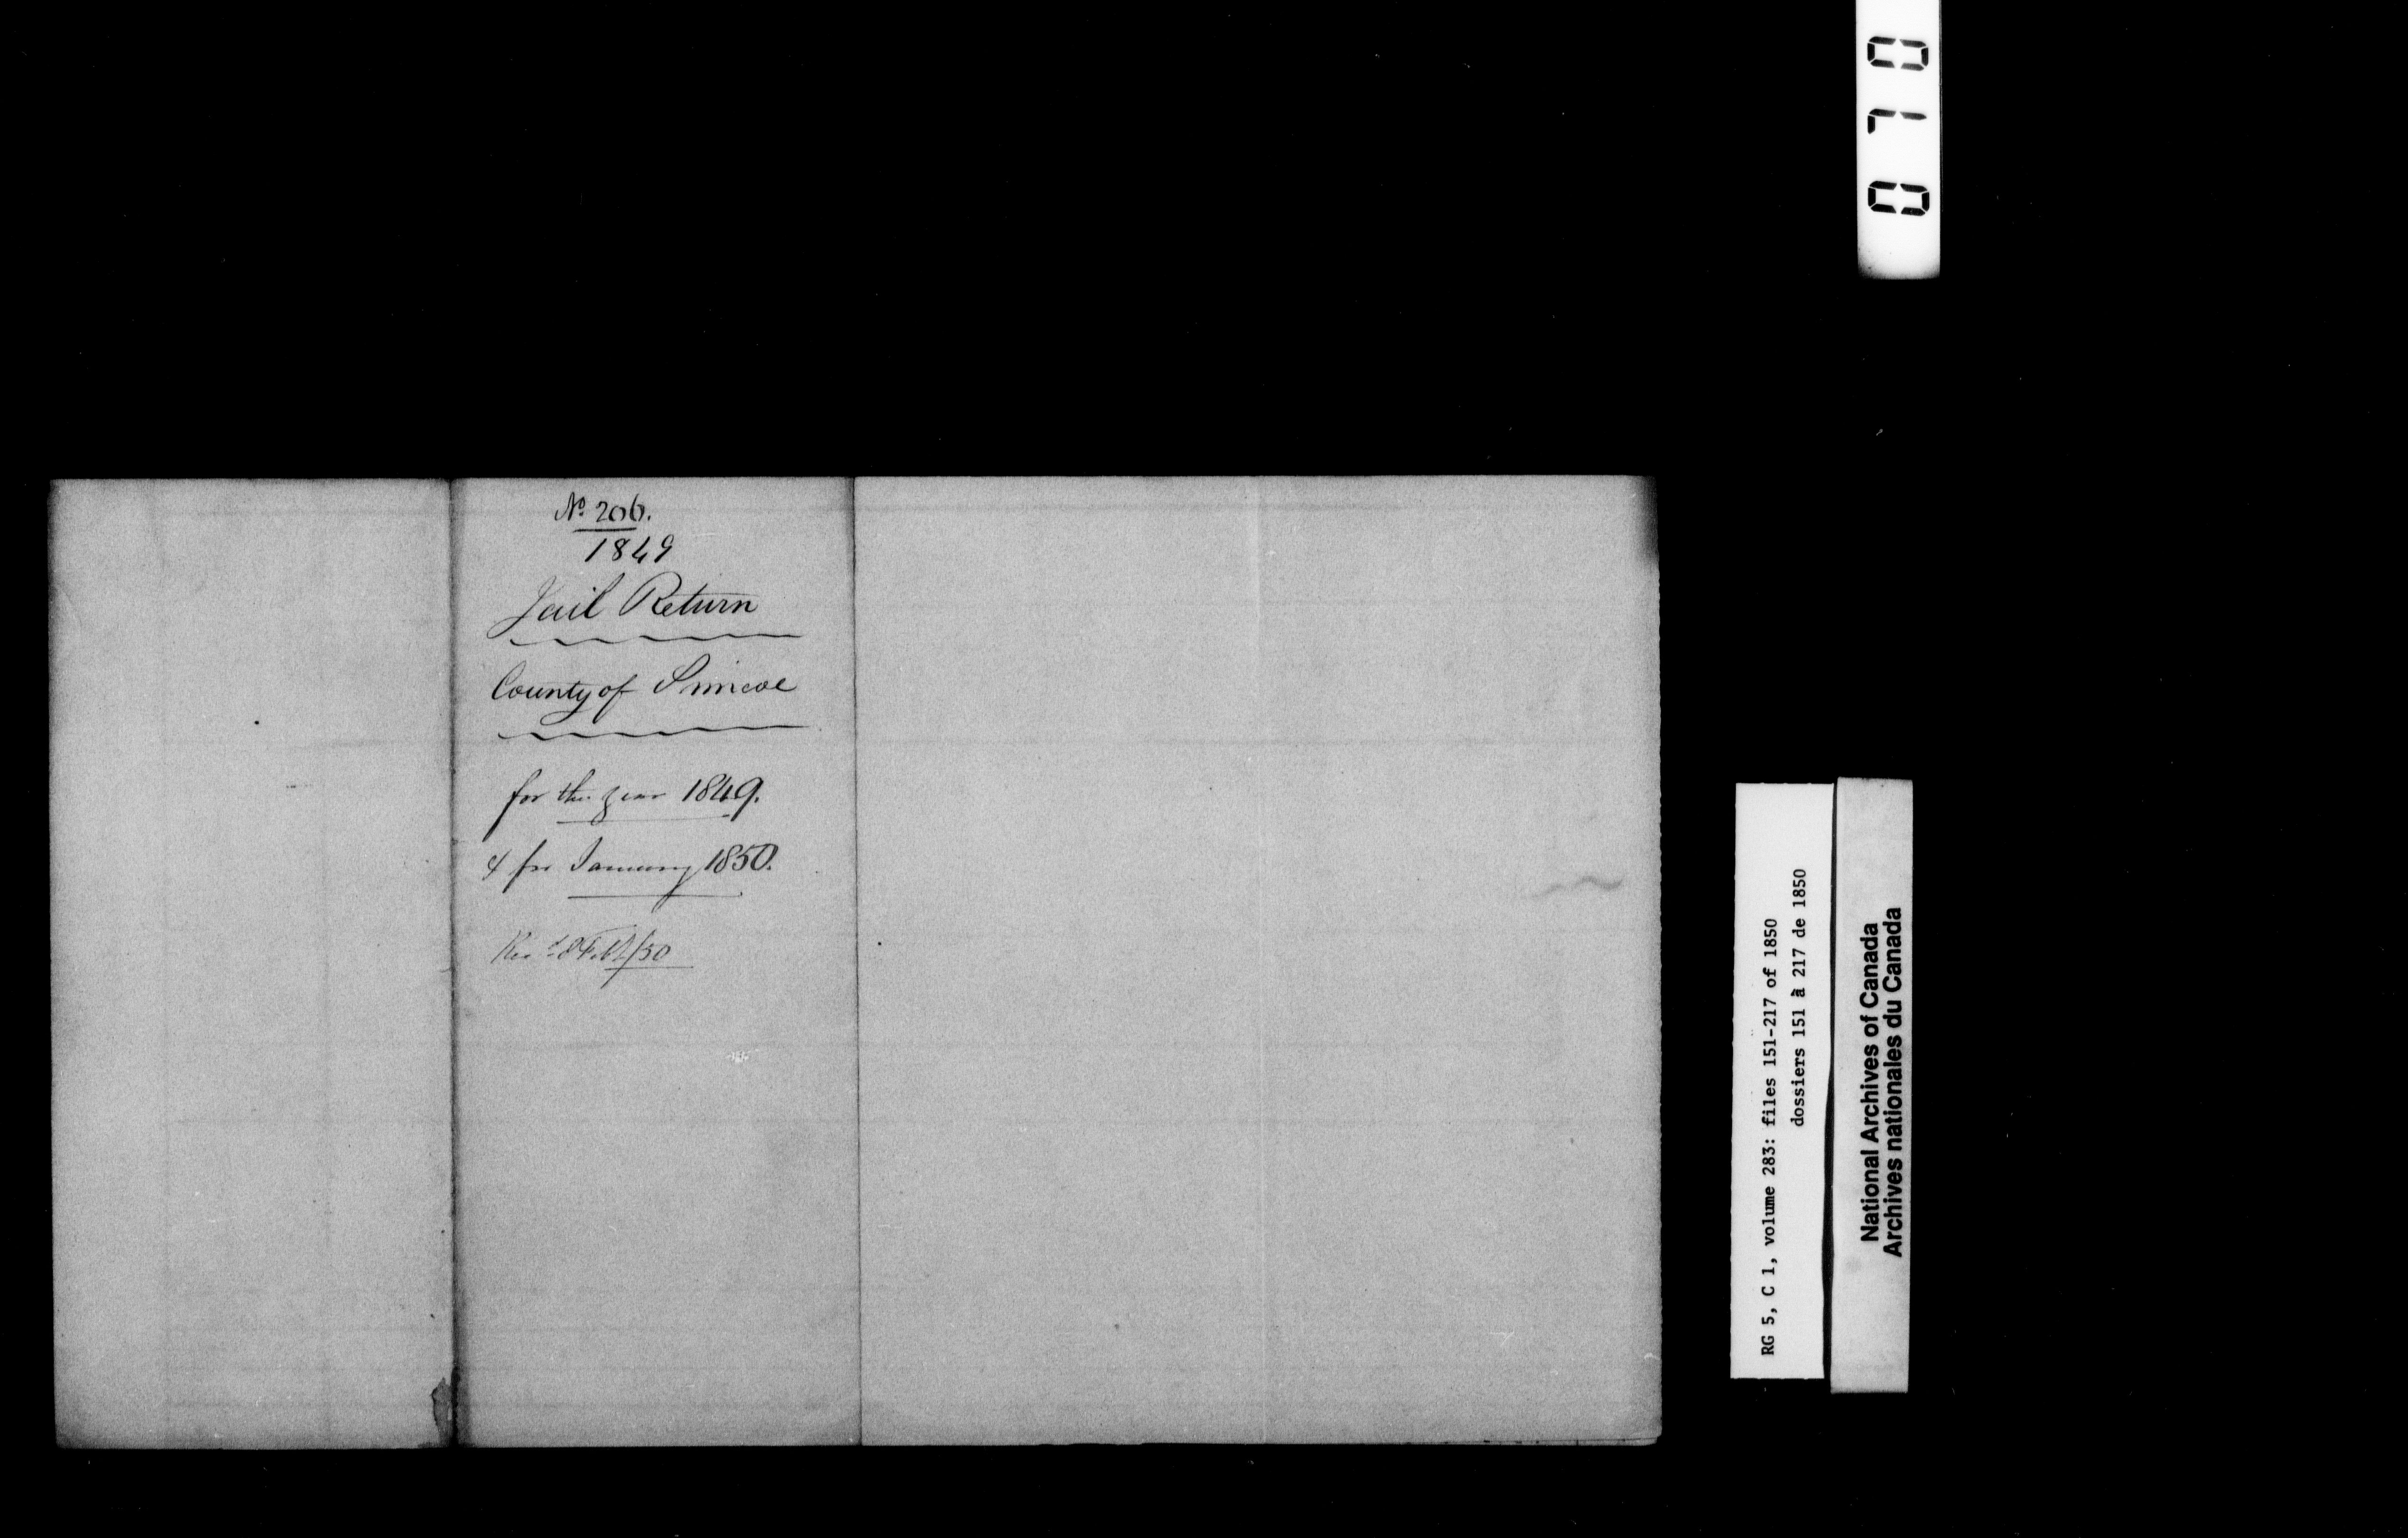 No. 206.
1849
Jail Return
County of Simcoe
for the year 1849.
& for January 1850.
Recd 8 Feby/50
070
RG 5, C 1, volume 283: files 151-217 of 1850
dossiers 151 à 217 de 1850
National Archives of Canada
Archives nationales du Canada